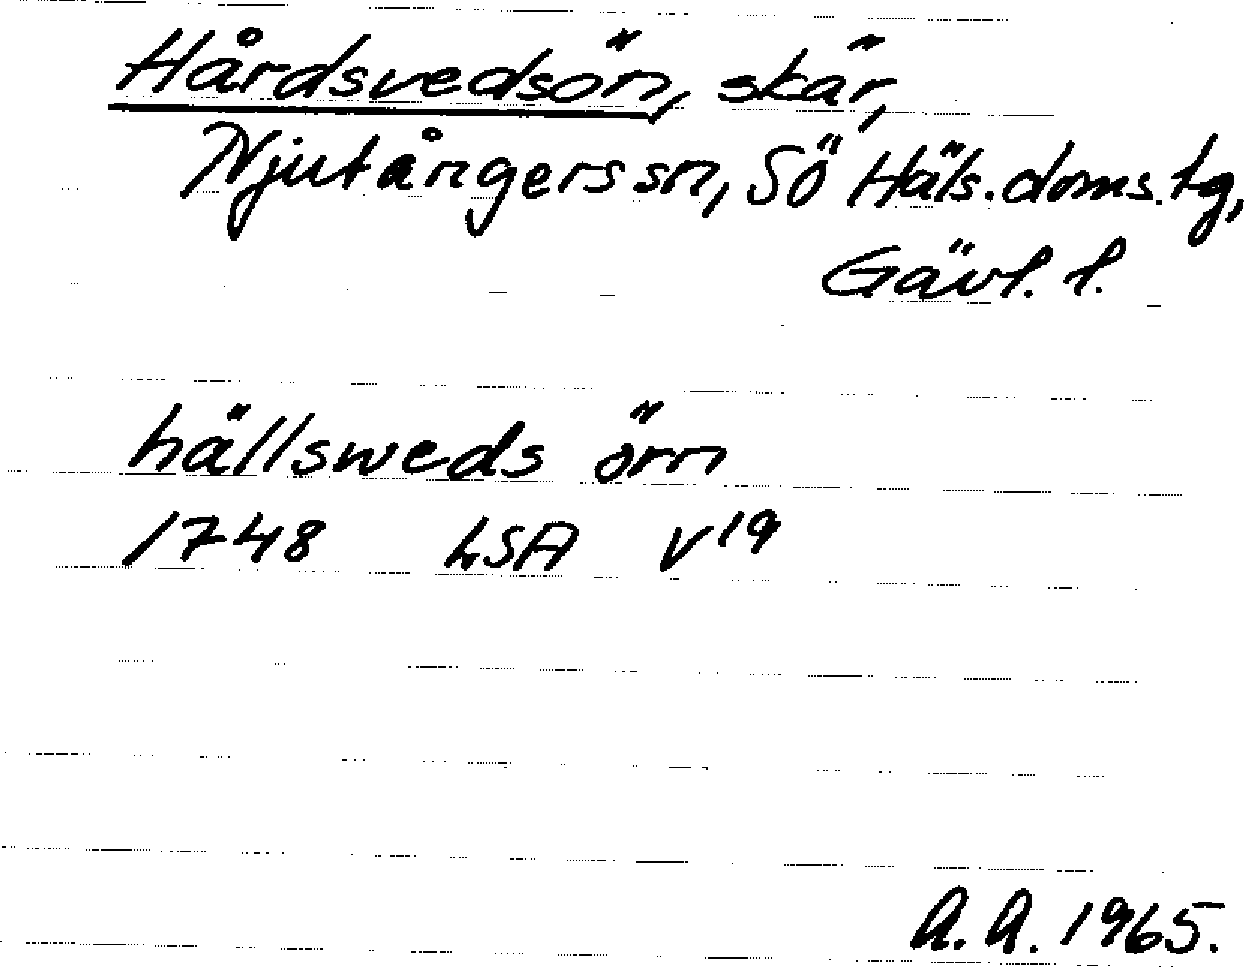 Hårdsvedsön, skär,
Njutångers sn, Sö Häls. doms. tg,
Gävl. l.
hällsweds örn
1748 LSA V19
A.A. 1965.